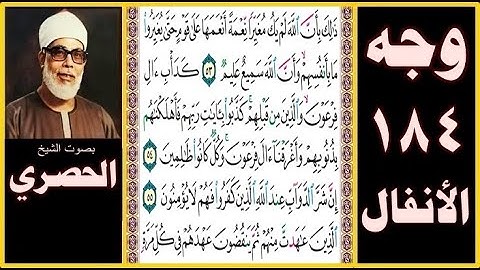 وجه
١٨٤
الأنفال
ذَٰلِكَ بِأَنَّ ٱللَّهَ لَمْ يَكُ مُغَيِّرًا نِّعْمَةً أَنْعَمَهَا عَلَىٰ قَوْمٍ حَتَّىٰ يُغَيِّرُوا۟
مَا بِأَنفُسِهِمْ وَأَنَّ ٱللَّهَ سَمِيعٌ عَلِيمٌ ٥٣ كَدَأْبِ ءَالِ
فِرْعَوْنَ وَٱلَّذِينَ مِن قَبْلِهِمْ كَذَّبُوا۟ بِـَٔايَـٰتِ رَبِّهِمْ فَأَهْلَكْنَـٰهُم
بِذُنُوبِهِمْ وَأَغْرَقْنَآ ءَالَ فِرْعَوْنَ وَكُلٌّ كَانُوا۟ ظَـٰلِمِينَ ٥٤
إِنَّ شَرَّ ٱلدَّوَآبِّ عِندَ ٱللَّهِ ٱلَّذِينَ كَفَرُوا۟ فَهُمْ لَا يُؤْمِنُونَ ٥٥
ٱلَّذِينَ عَـٰهَدتَّ مِنْهُمْ ثُمَّ يَنقُضُونَ عَهْدَهُمْ فِى كُلِّ مَرَّةٍ
بصوت الشيخ
الحصري